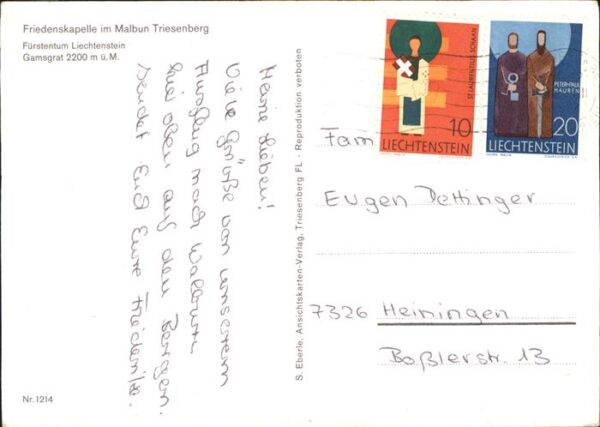 Friedenskapelle im Malbun Triesenberg
Fürstentum Liechtenstein
Gamsgrat 2200 m ü.M.
Meine Lieben!
Viele Grüße von unserem
Ausflug nach Malbun
hier oben auf den Bergen.
sendet Euch Eure Friederike.
Nr. 1214
S. Eberle, Ansichtskarten-Verlag, Triesenberg FL - Reproduktion verboten
ST. LAURENTIUS SCHAAN
10
LIECHTENSTEIN
PETER+PAUL
MAUREN
20
LIECHTENSTEIN
Fam
Eugen Dettinger
7326 Heiningen
Boßlerstr. 13